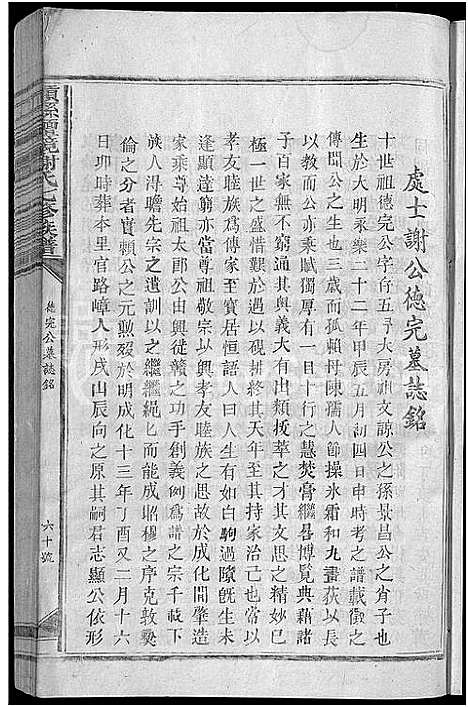 處士謝公德完墓誌銘
十世祖德完公字存五予大房祖文諒公之孫景昌公之肖子也
生於大明永樂二十二年甲辰五月初四日申時考之譜載徵之
傳聞公之生也三歲而孤賴母陳孺人節操氷霜和九畫荻以長
以教而公亦秉賦獨厚有一目十行之慧焚膏繼晷博覽典藉諸
子百家無不窮通其與義大有出類拔萃之才其文思之精妙已
極一世之盛惜艱於遇以硯耕終其天年至其持家治己也常以
孝友睦族爲傳家至寶居恒語人曰人生有如白駒過隙旣生未
逢顯達窮亦當尊祖敬宗以興孝友睦族之思故於成化間肇造
家乘奠始祖太郎公由興徙贛之功手創義例爲譜之宗千載下
族人淂瞻先宗之遺訓以之繼繼繩匕而成昭穆之序克敦彝
倫之分者實賴公之元勲歿於明成化十三年丁酉又二月十六
日卯時葬本里官路嶂人形戌山辰向之原其嗣君志顯公依形
謝氏 修族譜
德完公墓誌銘
六十號